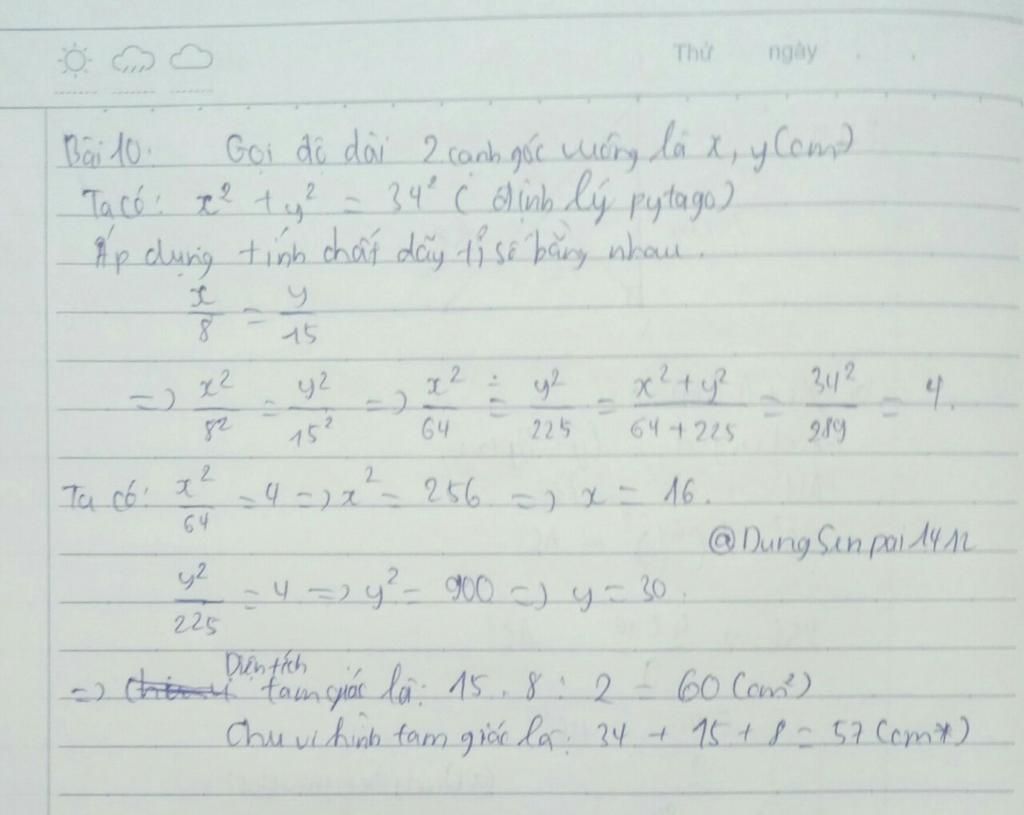 Thứ ngày
Bài 10. Gọi độ dài 2 cạnh góc vuông là x, y (cm)
Ta có: x² + y² = 34² (định lý pytago)
Áp dụng tính chất dãy tỉ số bằng nhau.
x/8 = y/15
=> x²/8² = y²/15² => x²/64 = y²/225 = x²+y²/64+225 = 34²/289 = 4.
Ta có: x²/64 = 4 => x² = 256 => x = 16.
@DungSenpai1412
y²/225 = 4 => y² = 900 => y = 30.
=> Diện tích tam giác là: 15 . 8 : 2 = 60 (cm²)
Chu vi hình tam giác là: 34 + 15 + 8 = 57 (cm)